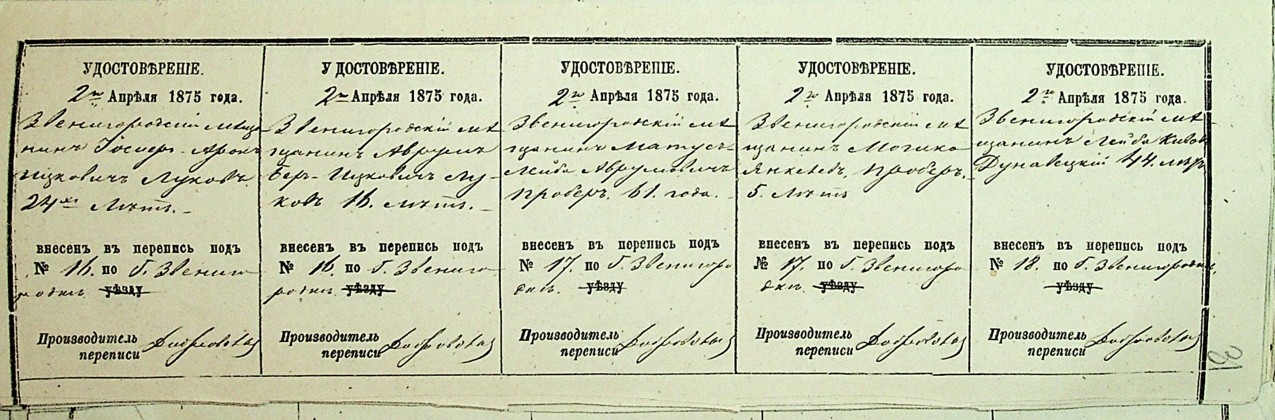 УДОСТОВѢРЕНІЕ.
2го Апрѣля 1875 года.
Звенигородскій мѣща
нинъ Іосиф-Аронъ
Ицковичъ Луковъ
24хъ лѣтъ.
внесенъ въ перепись подъ
№ 16. по г. Звениго
родкѣ уѣзду
Производитель
переписи
УДОСТОВѢРЕНІЕ.
2го Апрѣля 1875 года.
Звенигородскій мѣ
щанинъ Аврумъ
Бер-Ицковичъ Лу
ковъ 16. лѣтъ.
внесенъ въ перепись подъ
№ 16. по г. Звениго
родкѣ уѣзду
Производитель
переписи
УДОСТОВѢРЕНІЕ.
2го Апрѣля 1875 года.
Звенигородскій мѣ
щанинъ Матусъ
Лейба Аврумовичъ
Проберъ. 61. года.
внесенъ въ перепись подъ
№ 17. по г. Звенигоро
дкѣ. уѣзду
Производитель
переписи
УДОСТОВѢРЕНІЕ.
2го Апрѣля 1875 года.
Звенигородскій мѣ
щанинъ
Янкелев. Проберъ.
5. лѣтъ
внесенъ въ перепись подъ
№ 17. по г. Звенигоро
дкѣ. уѣзду
Производитель
переписи
УДОСТОВѢРЕНІЕ.
2го Апрѣля 1875 года.
Звенигородскій мѣ
щанинъ Лейба
Дунавецкій 44 лѣтъ
внесенъ въ перепись подъ
№ 18. по г. Звенигородкѣ
уѣзду
Производитель
переписи